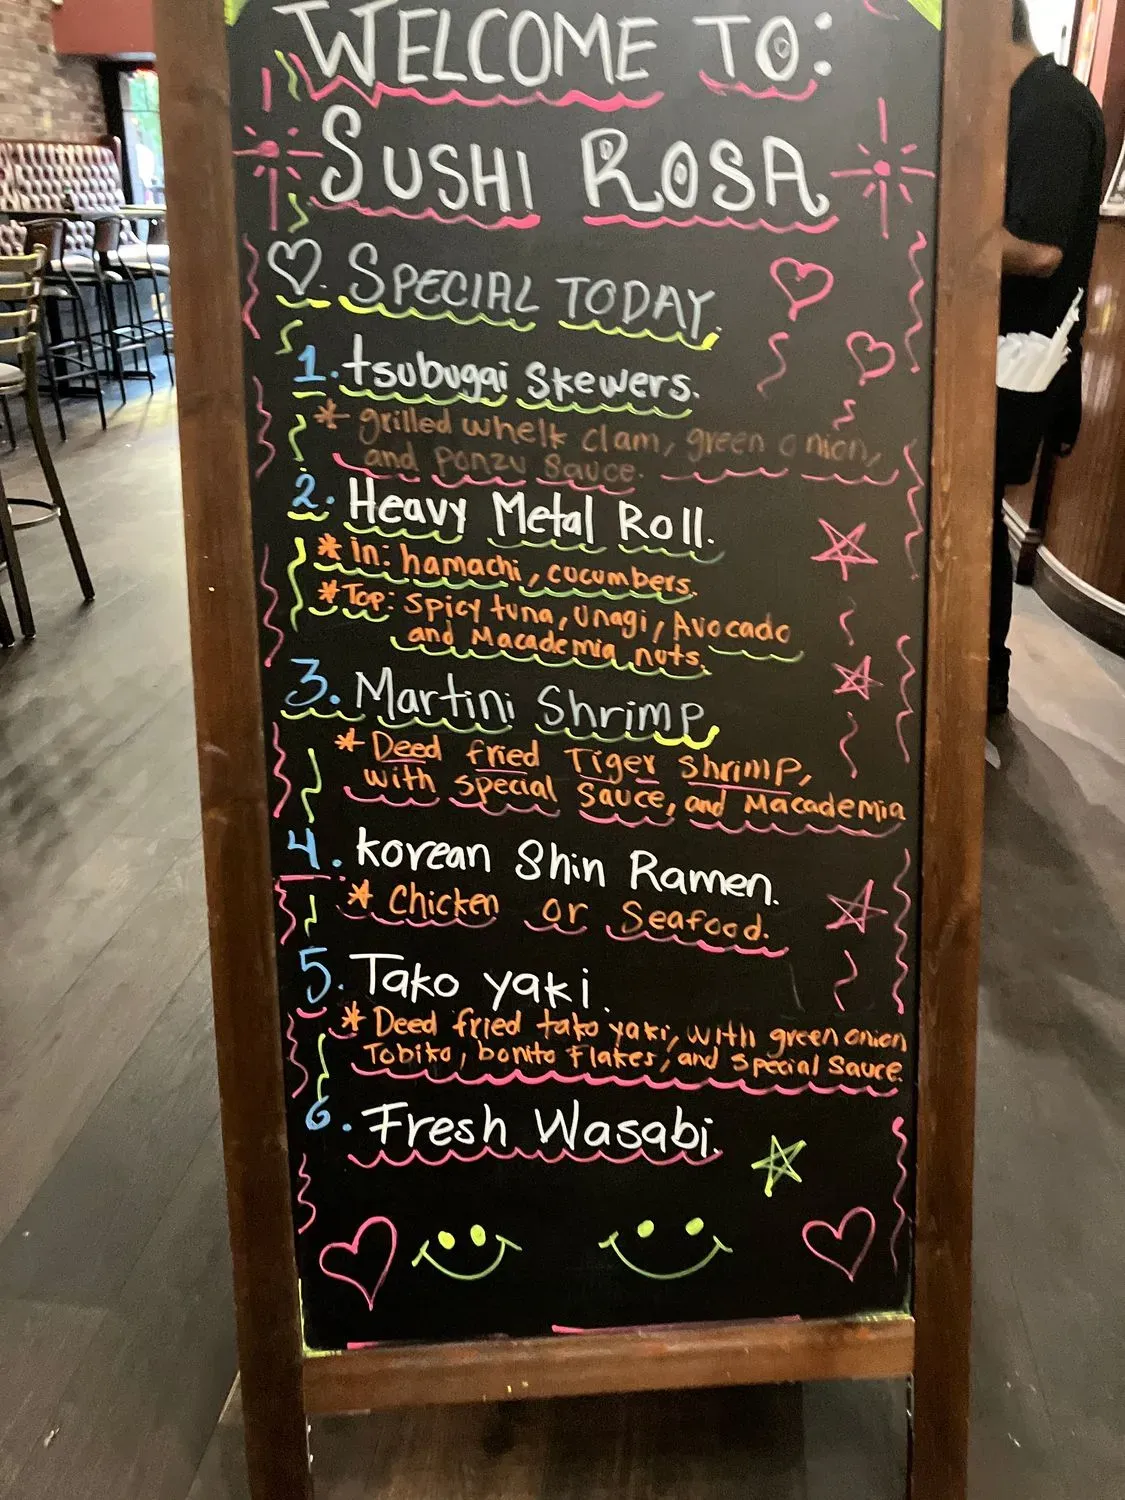 WELCOME TO:
SUSHI ROSA
SPECIAL TODAY.
1. tsubugai Skewers.
* grilled whelk clam, green onion,
and ponzu sauce.
2. Heavy Metal Roll.
* in: hamachi, cucumbers.
* Top: Spicy tuna, Unagi, Avocado
and Macademia nuts.
3. Martini Shrimp
* Deed fried Tiger shrimp,
with special Sauce, and Macademia
4. korean Shin Ramen.
* Chicken or Seafood.
5. Tako yaki.
* Deed fried tako yaki, with green onion
Tobiko, bonito Flakes, and Special Sauce.
6. Fresh Wasabi.